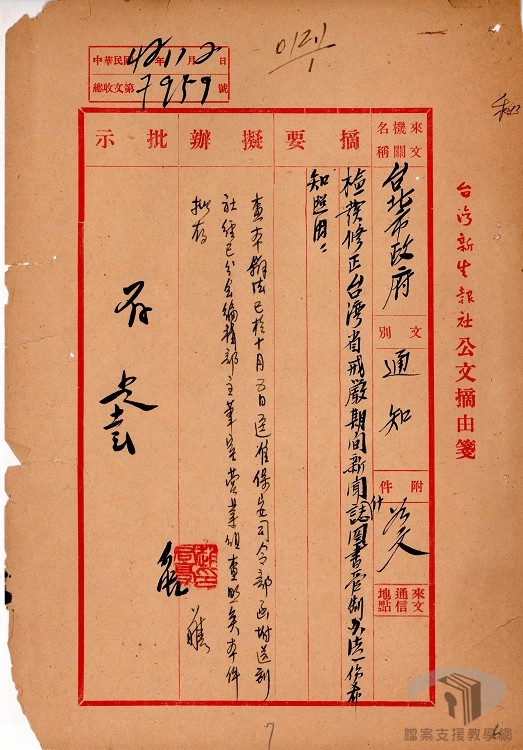 台灣新生報社公文摘由箋
來文機關名稱
台北市政府
文別
通知
附件
來文通信地點
摘要
檢發修正台灣省戒嚴期間新聞雜誌圖書管制办法一份希
知照由
擬辦
查本辦法已於十月五日逕准保安司令部函附送到
社經已分会編輯部主筆室營業組查照矣本件
擬存
批示
存
中華民國42年11月2日
總收文第7959號
0121
1
7
檔案支援教學網